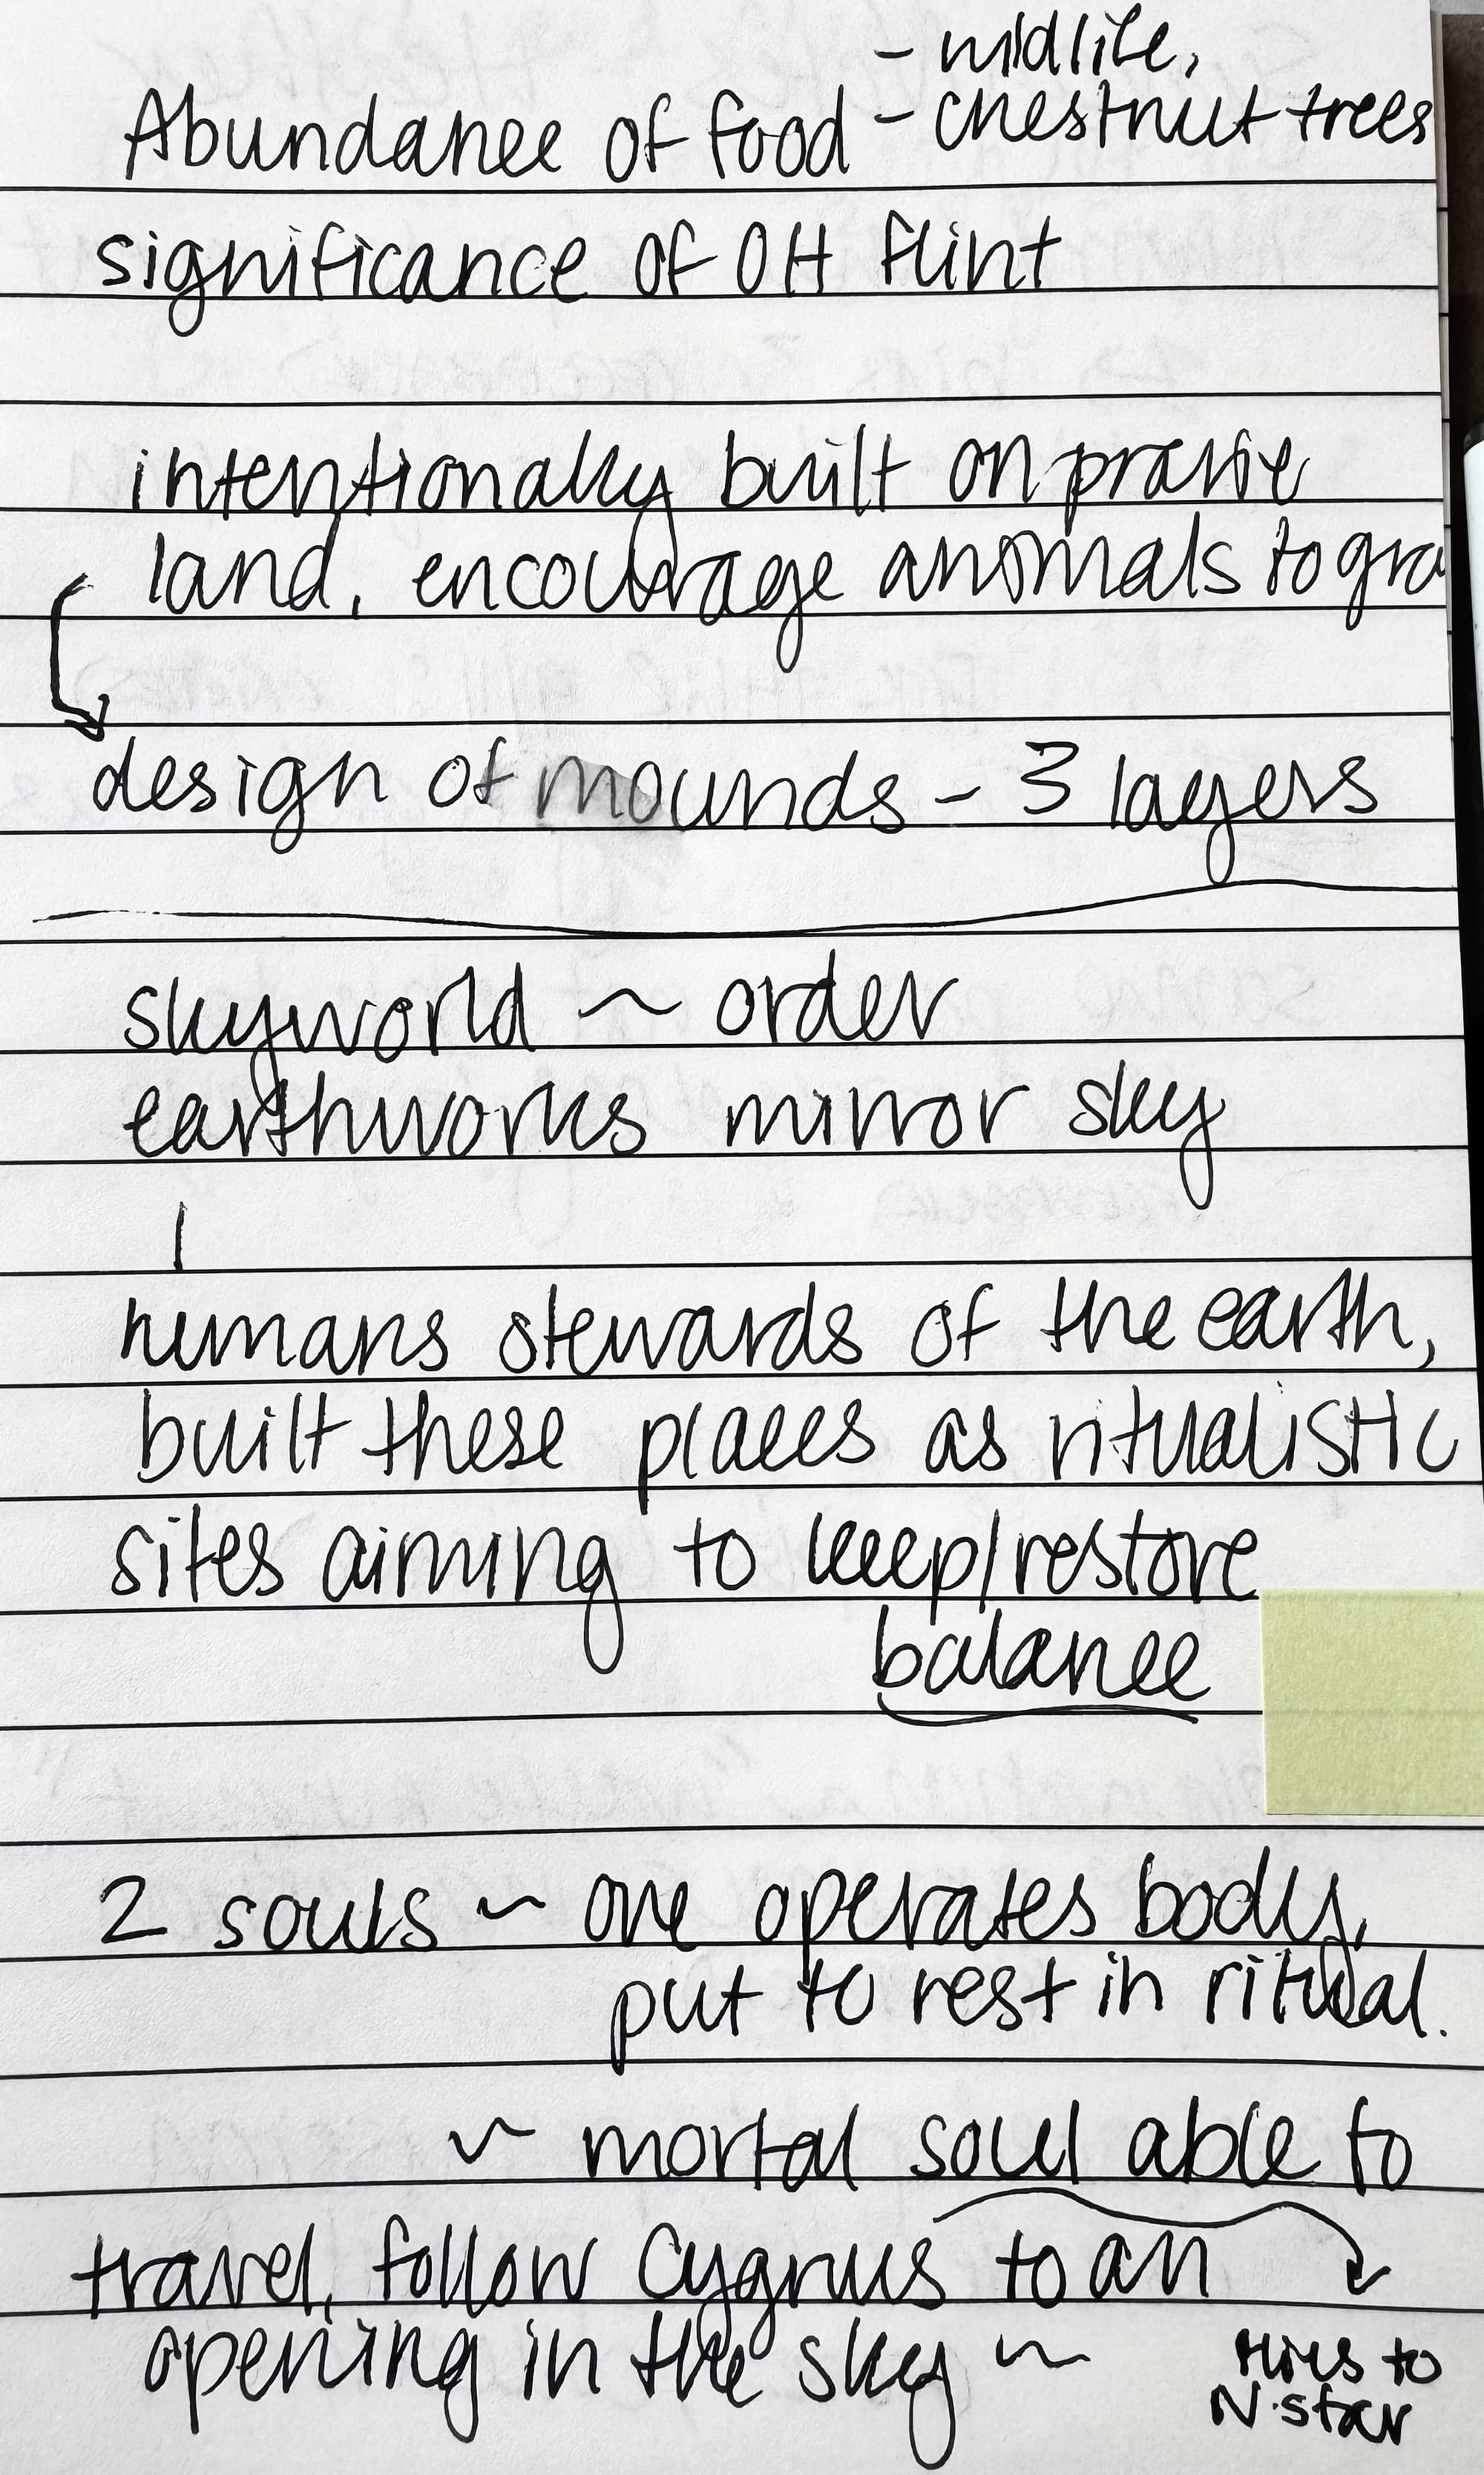 - wildlife,
Abundance of food - chestnut trees
significance of OH flint
intentionally built on prairie
land, encourage animals to gra
design of mounds - 3 layers
skyworld ~ order
earthworks mirror sky
humans stewards of the earth,
built these places as ritualistic
sites aiming to keep/restore
balance
2 souls ~ one operates body,
put to rest in ritual.
~ mortal soul able to
travel, follow Cygnus to an
opening in the sky ~
to
N. star